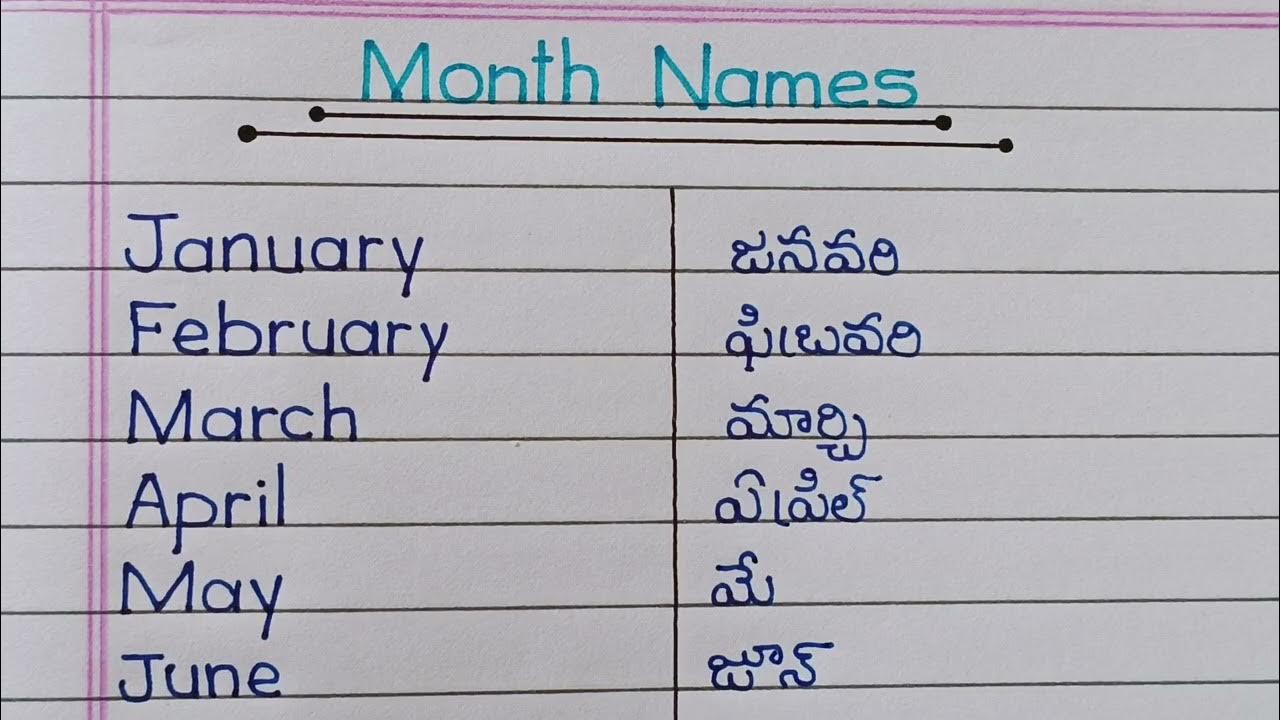 Month Names
January జనవరి
February ఫిబ్రవరి
March మార్చి
April ఏప్రిల్
May మే
June జూన్